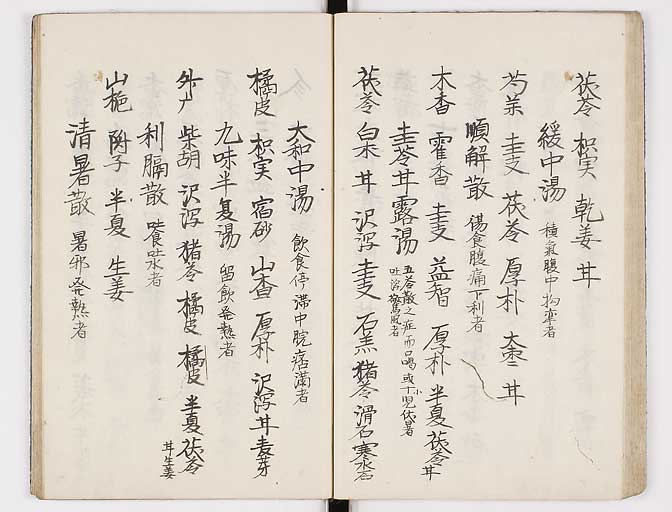 茯苓 枳実 乾姜 甘
緩中湯 積氣腹中拘牽者
芍薬 圭支 茯苓 厚朴 大棗 甘
順解散 傷食腹痛下利者
木香 霍香 圭支 益智 厚朴 半夏 茯苓 甘
圭苓甘露湯 五苓散之症而喝或小児伏暑
吐瀉驚風者
茯苓 白朮 甘 沢瀉 圭支 石羔 猪苓 滑石 寒水石
大和中湯 飲食停滞中脘痞満者
橘皮 枳実 宿砂 山査 厚朴 沢瀉 甘 麦芽
九味半夏湯 留飲発熱者
柴胡 沢瀉 猪苓 橘皮 橘皮 半夏 茯苓
甘 生姜
利膈散 噎食吐水者
山梔 附子 半夏 生姜
清暑散 暑邪発熱者